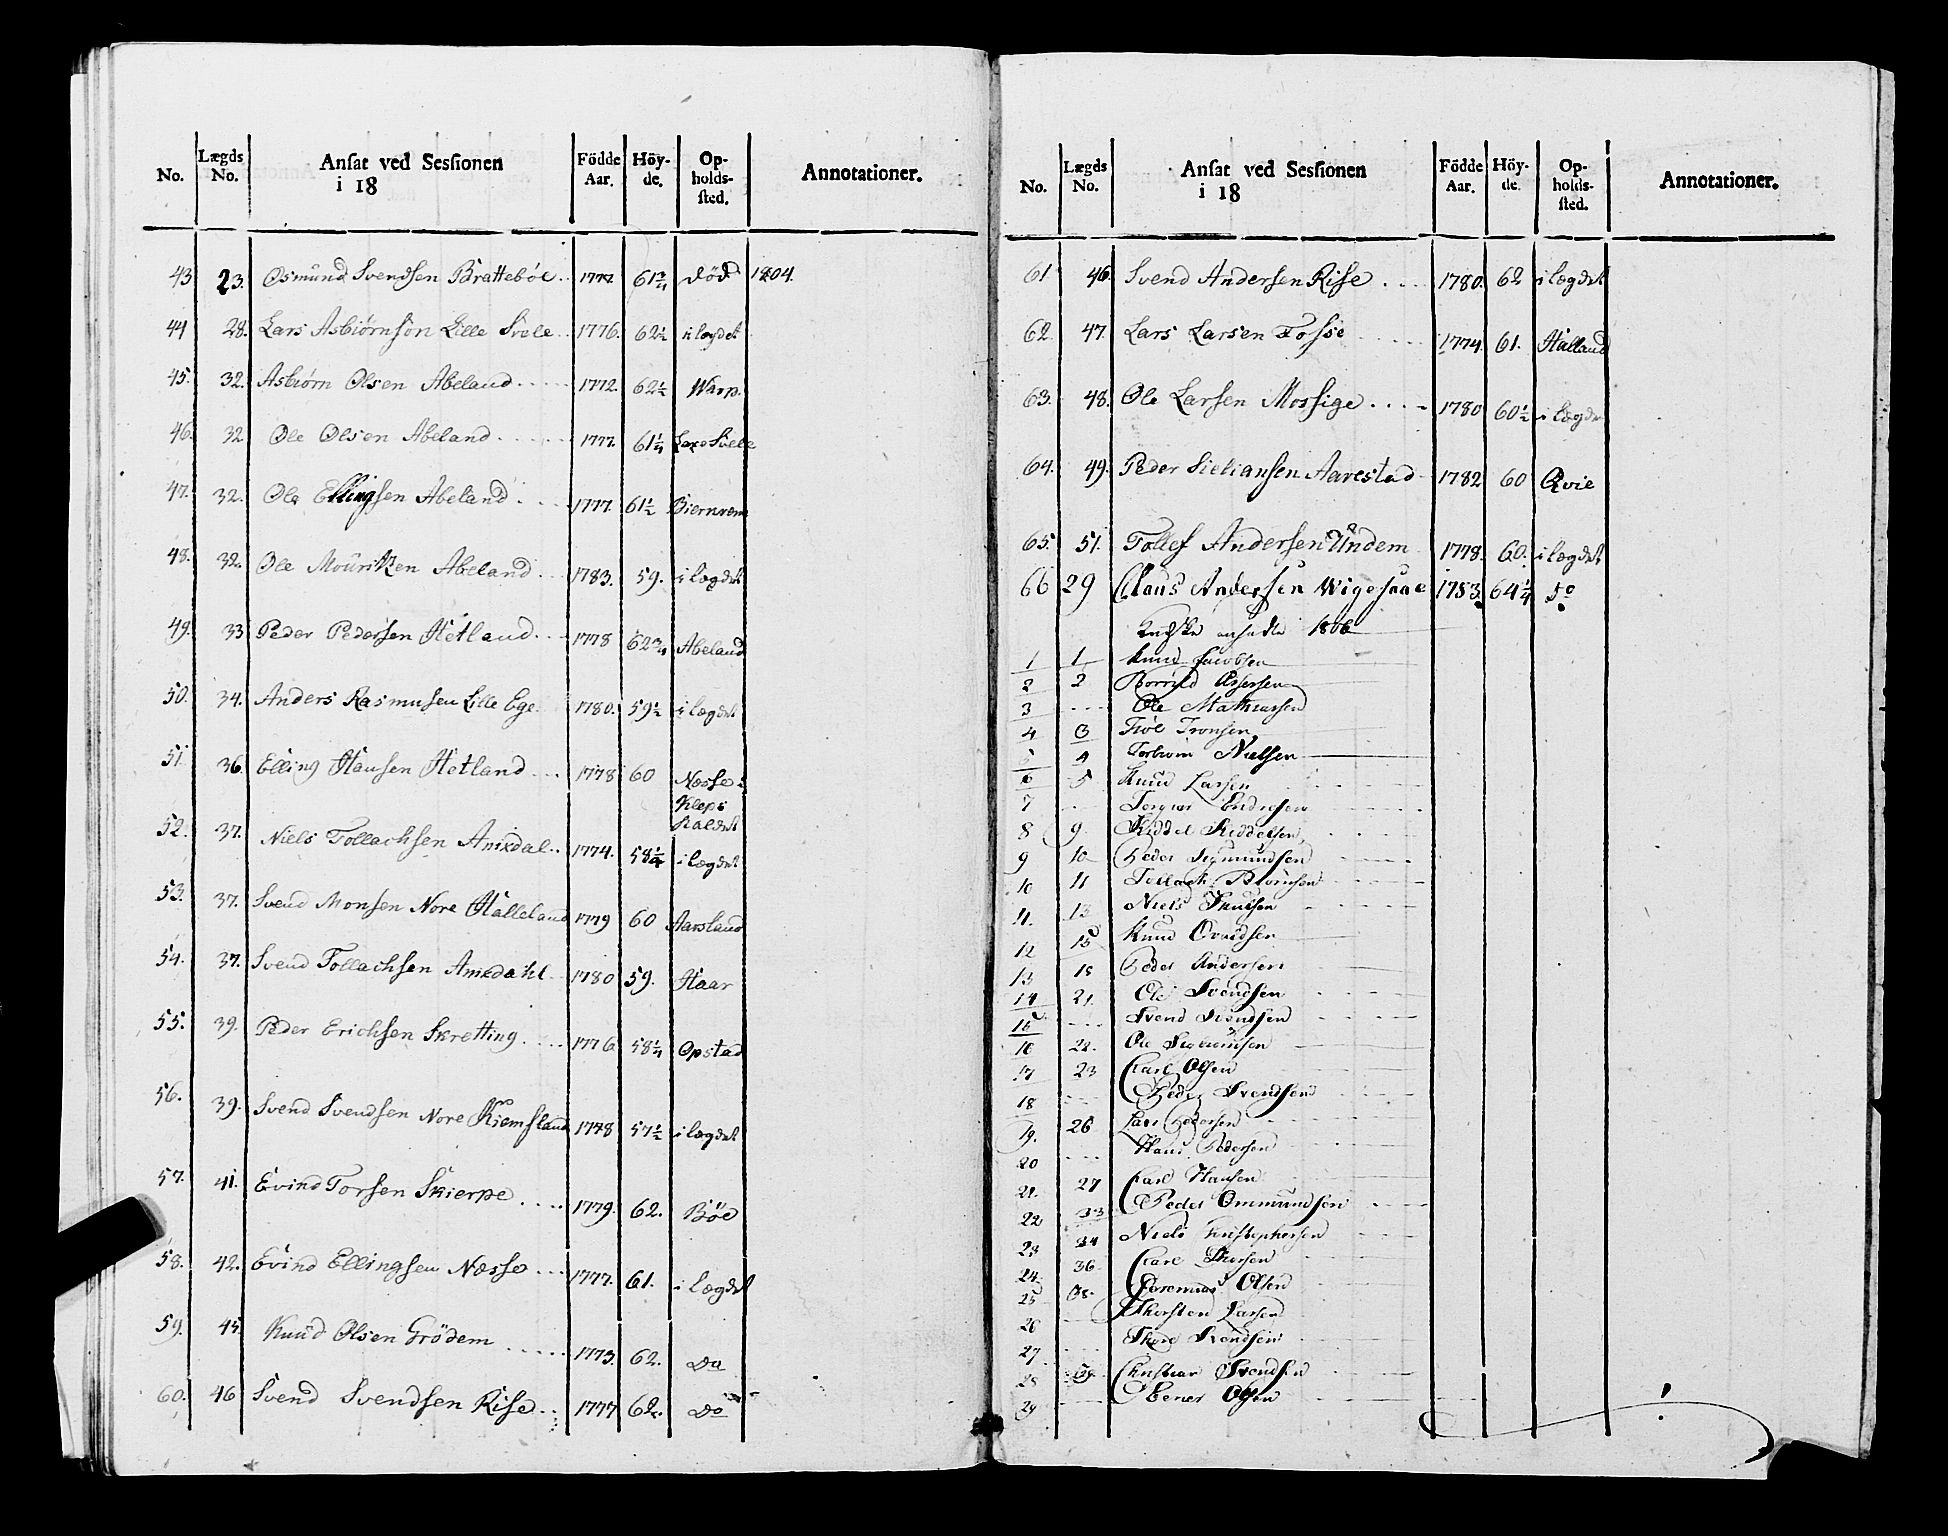 No. Lægds No. Ansat ved Sessionen i 18 Födde Aar. Höy-de. Op-holds-sted. Annotationer.
43 23. Osmund Svendsen Brattebøe 1777. 61 3/4 død 1804.
44 28. Lars Asbiørnsøn Lille Svele 1776. 62 1/2 i lægdet
45. 32. Asbiørn Olsen Abeland 1772. 62 1/2 Warp.
46. 32 Ole Olsen Abeland 1777. 61 1/4
47. 32. Ole Ellingsen Abeland 1777. 61 1/2
48. 32. Ole Mouritzen Abeland 1783. 59. i lægdet
49. 33 Peder Pedersen Hetland 1778 62 3/4 Abeland
50. 34. Anders Rasmusen Lille Ege 1780. 59 1/2 i lægdet
51 36. Elling Hansen Hetland 1778 60 Næsse i
Kleps
Kaldet
52. 37. Niels Tollachsen Amsdal 1774. 58 1/4 i lægdet
53. 37. Svend Monsen Nore Halleland 1779 60 Aarsland
54. 37. Svend Tollachsen Amsdahl 1780 59. Haar
55. 39. Peder Erichsen Skretting 1776 58 1/4 Opstad
56. 39. Svend Svendsen Nore Kiemsland 1778 57 1/2 i lægdet
57. 41. Evind Torsen Skierpe 1779. 62. Böe
58. 42. Evind Ellingsen Næsse 1777. 61. i lægdet
59. 45. Knud Olsen Grödem 1773. 62. Do
60. 46 Svend Svendsen Rise 1777 62. Do
No. Lægds No. Ansat ved Sessionen i 18 Födde Aar. Höy-de. Op-holds-sted. Annotationer.
61 46. Svend Andersen Rise 1780. 62 i lægdet
62. 47. Lars Larsen Fosse 1774. 61. Halland
63. 48. Ole Larsen Mossige 1780 60 1/2 i lægde
64. 49. Peder Sieliansen Aarestad 1782 60 Qvie
65. 51. Tollef Andersen Undem 1778. 60. i lægdet
66 29 Claus Andersen Wigesaae 1753. 64 1/4 Do
ansadte 1806
1 1 Knud Jacobsen
2 2 Borrild Assersen
3 Ole Mathiassen
4 3 Tronsen
5 4 Nielsen
6 5 Knud Larsen
7 Endresen
8 9. Kiddel Kiddelsen
9 10 Peder Sigmundsen
10 11 Tollach Biørnsen
11. 13 Niels Knudsen
12 15 Knud
13 18 Peder Andersen
14 21. Ole Svendsen
15 Svend Svendsen
16 22. Ole
17 23 Carl Olsen
18 Peder Svendsen
19. 26 Lars Pedersen
20 Hans Pedersen
21. 27 Carl Hansen
22 33 Peder Ommundsen
23 34 Niels Kristophersen
24. 36 Carl Thorsen
25 38. Olsen
26 Thorsten Larsen
27 Thore Svendsen
28 39. Christian Svendsen
29 Olsen